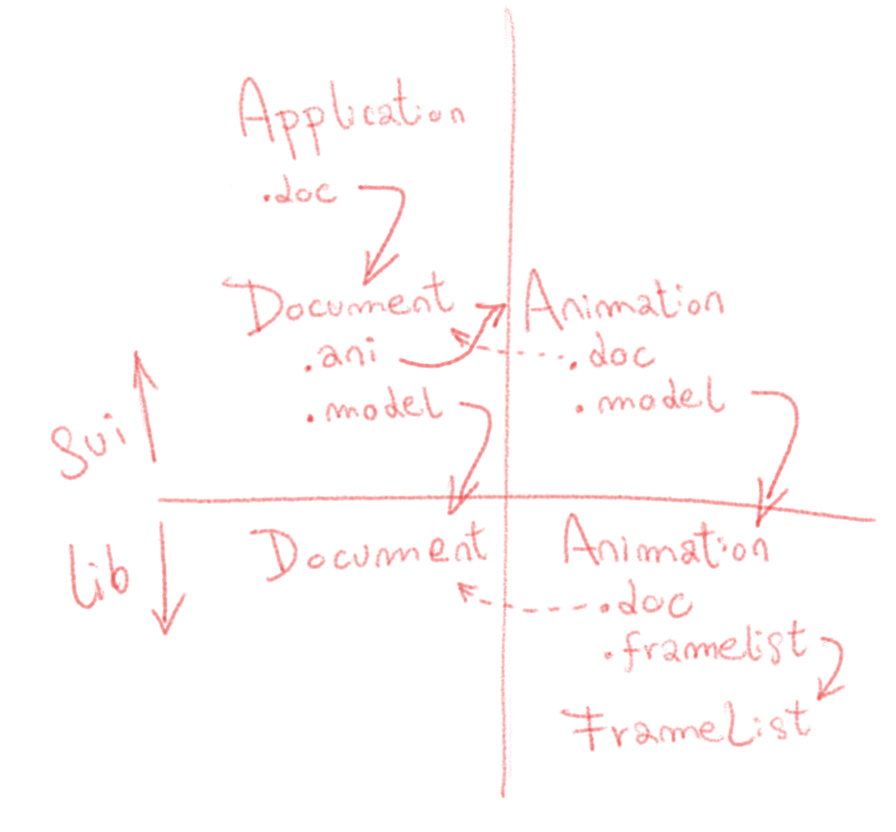 Application
.doc
Document
.ani
.model
Animation
.doc
.model
gui
lib
Document
Animation
.doc
.framelist
FrameList